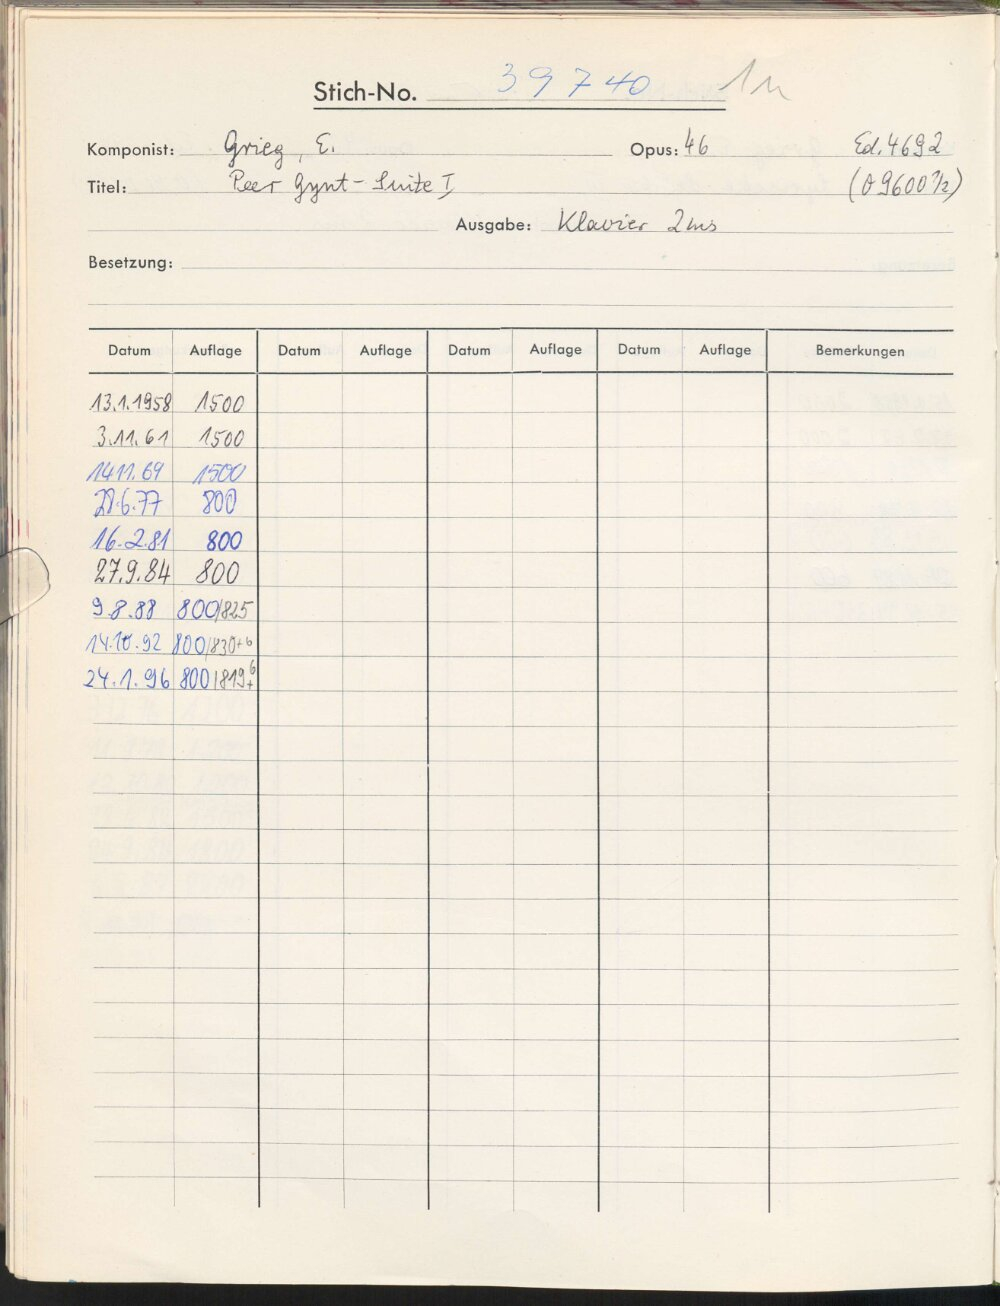 Stich-No. 39740
Komponist: Grieg, E. Opus: 46 Ed. 4692
Titel: Peer Gynt - Suite I
Ausgabe: Klavier 2ms
Besetzung:
Datum Auflage Datum Auflage Datum Auflage Datum Auflage Bemerkungen
13.1.1958 1500
3.11.61 1500
14.11.69 1500
28.6.77 800
16.2.81 800
27.9.84 800
9.8.88 800/825
14.10.92 800/830+6
24.1.96 800/819+6